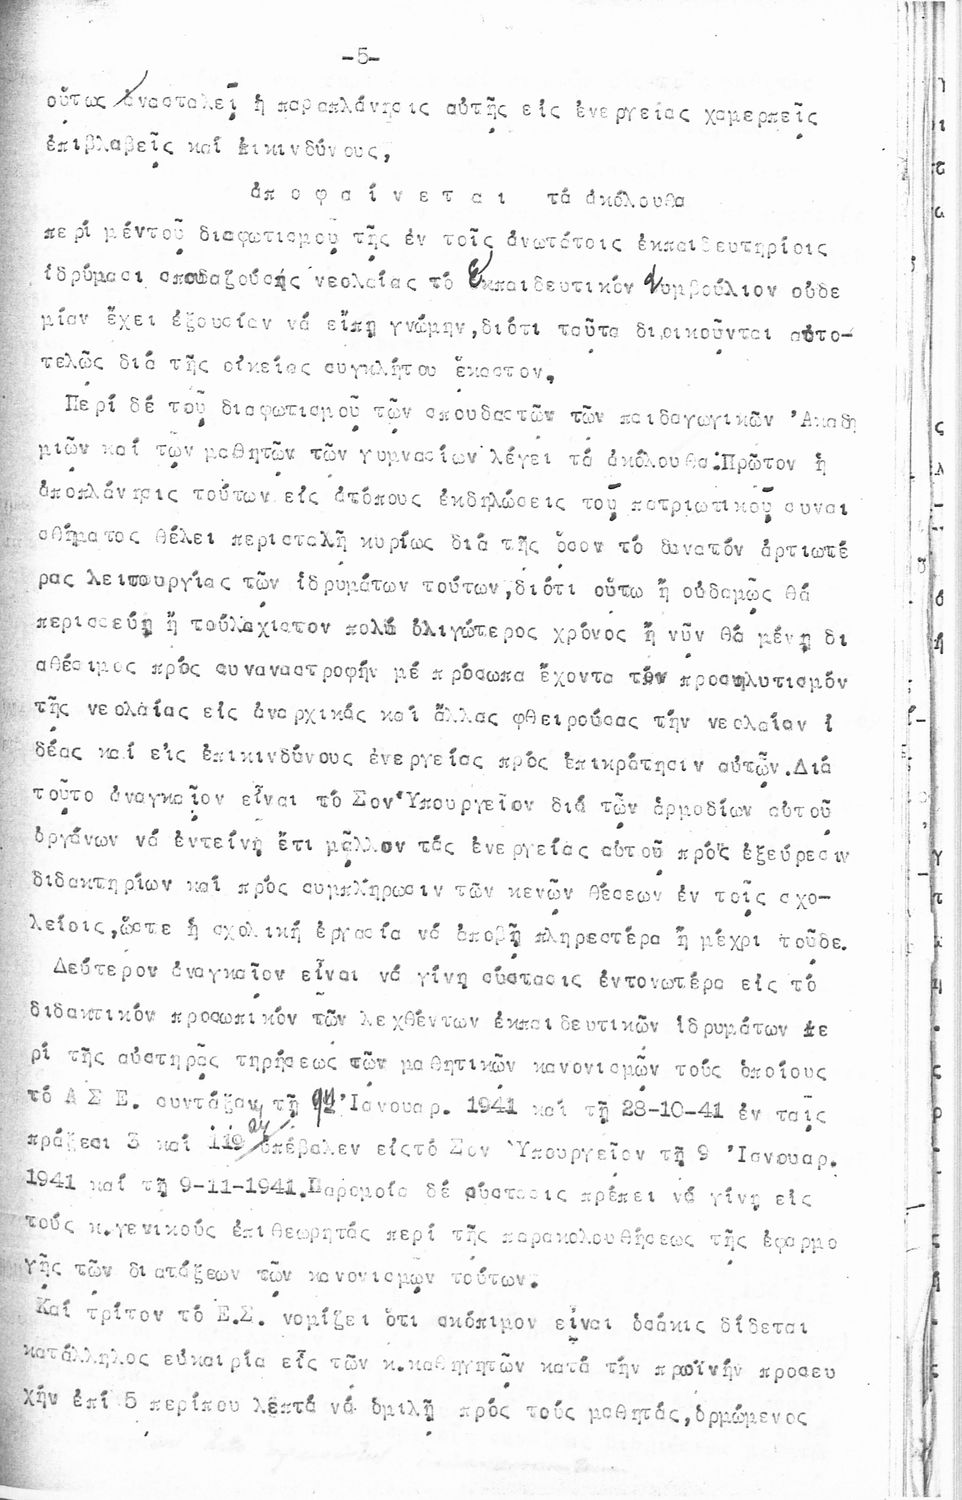 -5-
οὕτως ἀνασταλεῖ ἡ παραπλάνησις αὐτῆς εἰς ἐνεργείας χαμερπεῖς
ἐπιβλαβεῖς καί ἐπικινδύνους,
ἀ π ο φ α ί ν ε τ α ι τά ἀκόλουθα
περί μέντοῦ διαφωτισμοῦ τῆς ἐν τοῖς ἀνωτάτοις ἐκπαιδευτηρίοις
ἱδρύμασι σπουδαζούσης νεολαίας τό Ἐκπαιδευτικόν Συμβούλιον οὐδε
μίαν ἔχει ἐξουσίαν νά εἴπῃ γνώμην,διότι ταῦτα διοικοῦνται αὐτο-
τελῶς διά τῆς οἰκείας συγκλήτου ἕκαστον.
Περί δέ τοῦ διαφωτισμοῦ τῶν σπουδαστῶν τῶν παιδαγωγικῶν Ἀκαδη
μιῶν καί τῶν μαθητῶν τῶν γυμνασίων λέγει τά ἀκόλουθα:Πρῶτον ἡ
ἀποπλάνησις τούτων εἰς ἀτόπους ἐκδηλώσεις τοῦ πατριωτικοῦ συναι
σθήματος θέλει περισταλῆ κυρίως διά τῆς ὅσον τό δυνατόν ἀρτιωτέ
ρας λειτουργίας τῶν ἱδρυμάτων τούτων,διότι οὕτω ἤ οὐδαμῶς θά
περισσεύῃ ἤ τοὐλάχιστον πολύ ὀλιγώτερος χρόνος ἤ νῦν θά μένῃ δι
αθέσιμος πρός συναναστροφήν μέ πρόσωπα ἔχοντα τόν προσηλυτισμόν
τῆς νεολαίας εἰς ἀναρχικάς καί ἄλλας φθειρούσας τήν νεολαίαν ἰ
δέας καί εἰς ἐπικινδύνους ἐνεργείας πρός ἐπικράτησιν αὐτῶν.Διά
τοῦτο ἀναγκαῖον εἶναι τό Σον Ὑπουργεῖον διά τῶν ἁρμοδίων αὐτοῦ
ὀργάνων νά ἐντείνῃ ἔτι μᾶλλον τάς ἐνεργείας αὐτοῦ πρός ἐξεύρεσιν
διδακτηρίων καί πρός συμπλήρωσιν τῶν κενῶν θέσεων ἐν τοῖς σχο-
λείοις,ὥστε ἡ σχολική ἐργασία νά ἀποβῇ πληρεστέρα ἤ μέχρι τοῦδε.
Δεύτερον ἀναγκαῖον εἶναι νά γίνῃ σύστασις ἐντονωτέρα εἰς τό
διδακτικόν προσωπικόν τῶν λεχθέντων ἐκπαιδευτικῶν ἱδρυμάτων πε
ρί τῆς αὐστηρᾶς τηρήσεως τῶν μαθητικῶν κανονισμῶν τούς ὁποίους
τό Α Σ Ε. συντάξαν τῇ Ἰανουαρ. 1941 καί τῇ 28-10-41 ἐν ταῖς
πράξεσι 3 καί 119 ὑπέβαλεν εἰςτό Σον Ὑπουργεῖον τῇ 9 Ἰανουαρ.
1941 καί τῇ 9-11-1941.Παρομοία δέ σύστασις πρέπει νά γίνῃ εἰς
τούς κ.γενικούς ἐπιθεωρητάς περί τῆς παρακολουθήσεως τῆς ἐφαρμο
γῆς τῶν διατάξεων τῶν κανονισμῶν τούτων.
Καί τρίτον τό Ε.Σ. νομίζει ὅτι σκόπιμον εἶναι ὁσάκις δίδεται
κατάλληλος εὐκαιρία εἷς τῶν κ.καθηγητῶν κατά τήν πρωϊνήν προσευ
χήν ἐπί 5 περίπου λεπτά νά ὁμιλῇ πρός τούς μαθητάς,ὁρμώμενος